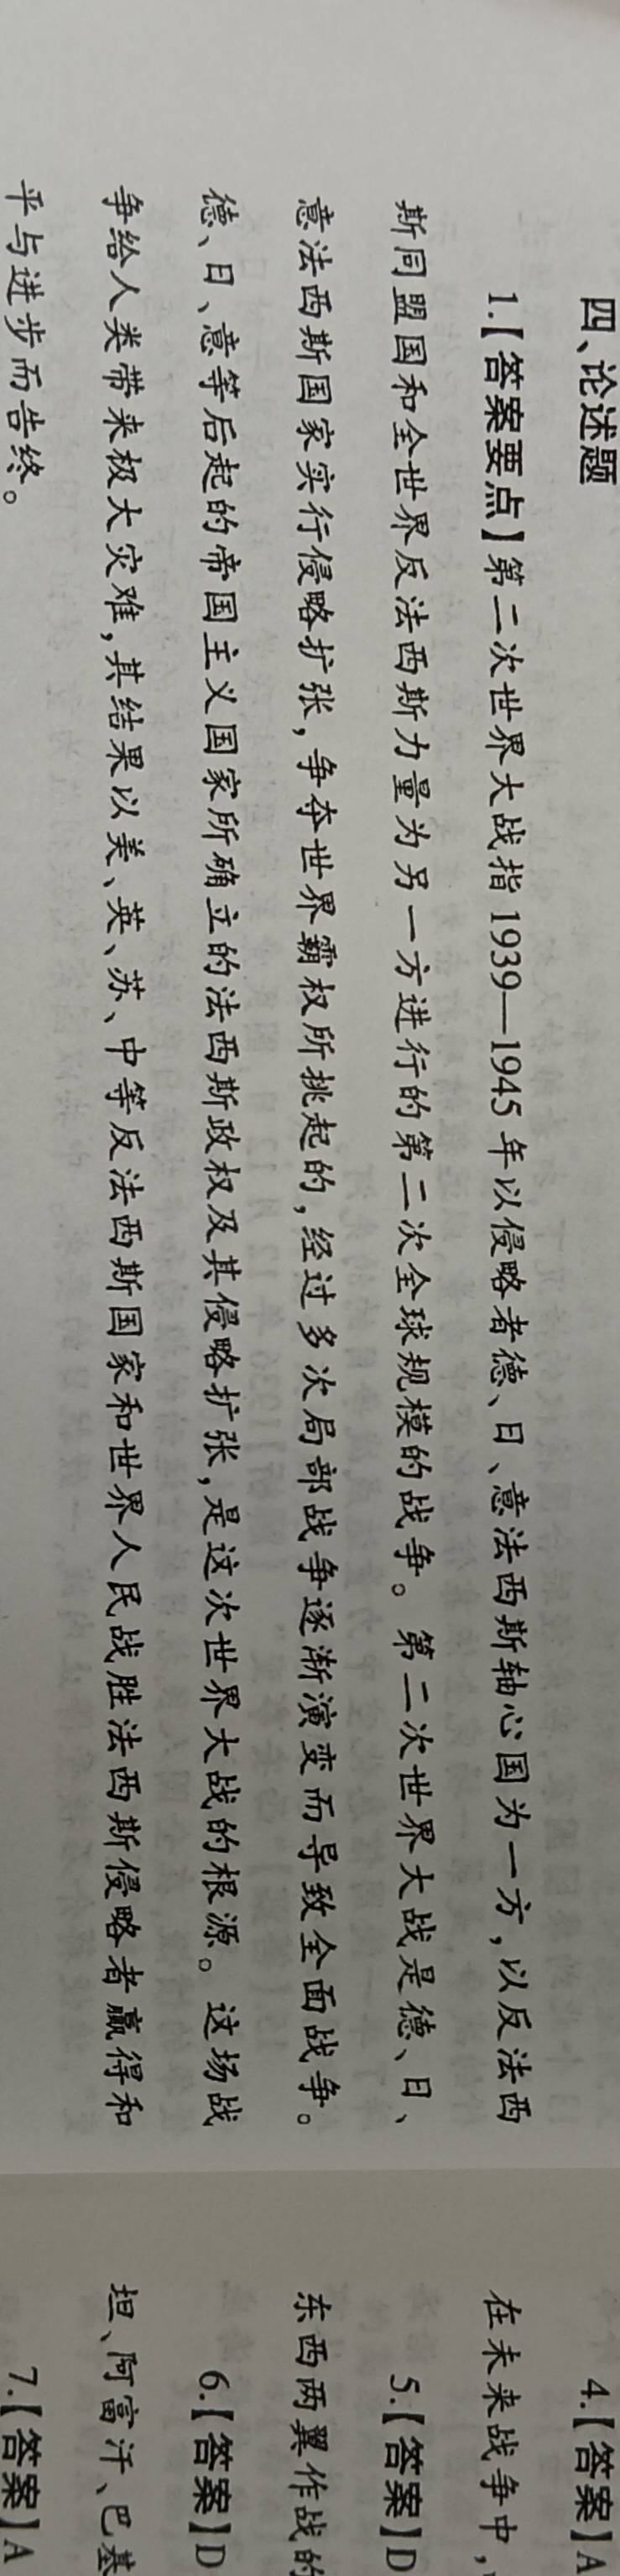 四、论述题
1.【答案要点】第二次世界大战指1939—1945年以侵略者德、日、意法西斯轴心国为一方,以反法西
斯同盟国和全世界反法西斯力量为另一方进行的第二次全球规模的战争。第二次世界大战是德、日、
意法西斯国家实行侵略扩张,争夺世界霸权所挑起的,经过多次局部战争逐渐演变而导致全面战争。
德、日、意等后起的帝国主义国家所确立的法西斯政权及其侵略扩张,是这次世界大战的根源。这场战
争给人类带来极大灾难,其结果以美、英、苏、中等反法西斯国家和世界人民战胜法西斯侵略者赢得和
平与进步而告终。
4.【答案】A
在未来战争中,
5.【答案】D
东西两翼作战的
6.【答案】D
坦、阿富汗、巴基
7.【答案】A